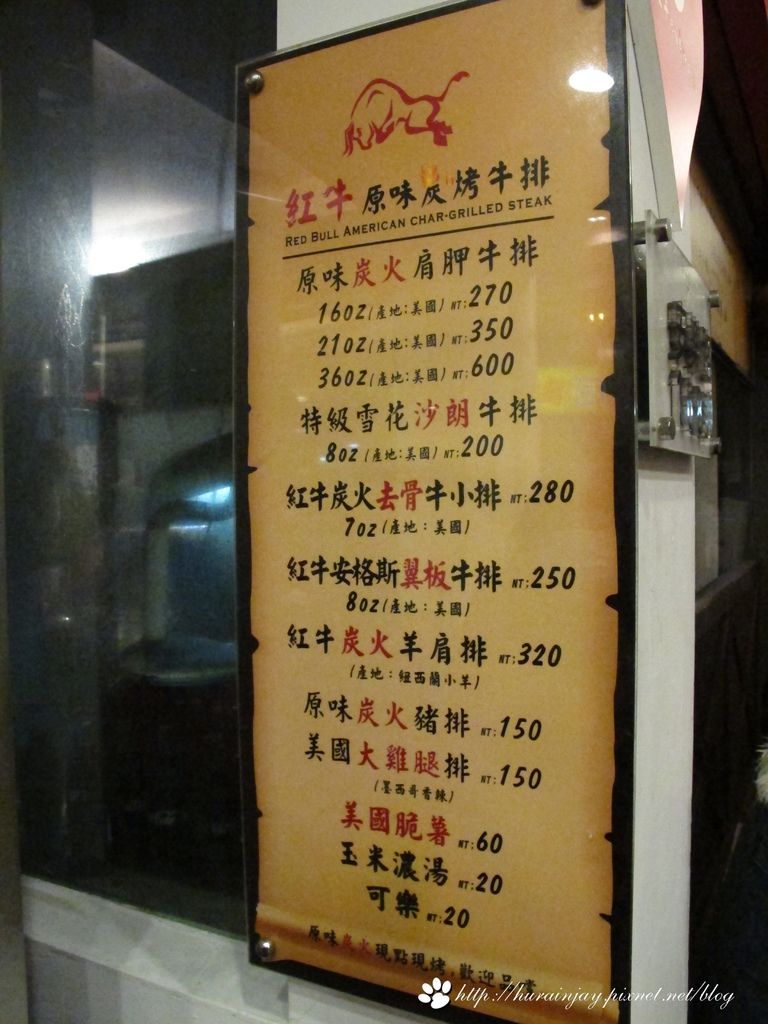 紅牛 原味炭烤牛排
RED BULL AMERICAN CHAR-GRILLED STEAK
原味炭火肩胛牛排
16OZ(產地:美國) NT:270
21OZ(產地:美國) NT:350
36OZ(產地:美國) NT:600
特級雪花沙朗牛排
8OZ(產地:美國) NT:200
紅牛炭火去骨牛小排 NT:280
7OZ(產地:美國)
紅牛安格斯翼板牛排 NT:250
8OZ(產地:美國)
紅牛炭火羊肩排 NT:320
(產地:紐西蘭小羊)
原味炭火豬排 NT:150
美國大雞腿排 NT:150
(墨西哥香辣)
美國脆薯 NT:60
玉米濃湯 NT:20
可樂 NT:20
原味炭火現點現烤,歡迎品嘗
http://hurainjay.pixnet.net/blog